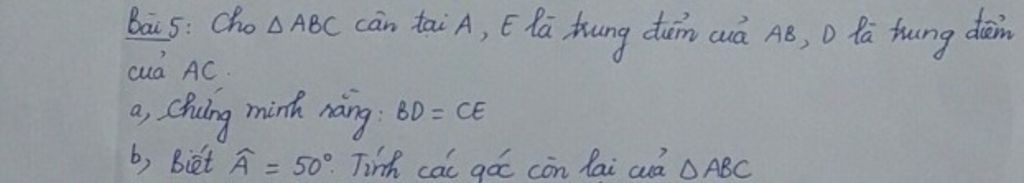 Bài 5: Cho △ABC cân tại A, E là trung điểm của AB, D là trung điểm
của AC.
a, Chứng minh rằng: BD = CE
b, Biết Â = 50°. Tính các góc còn lại của △ABC